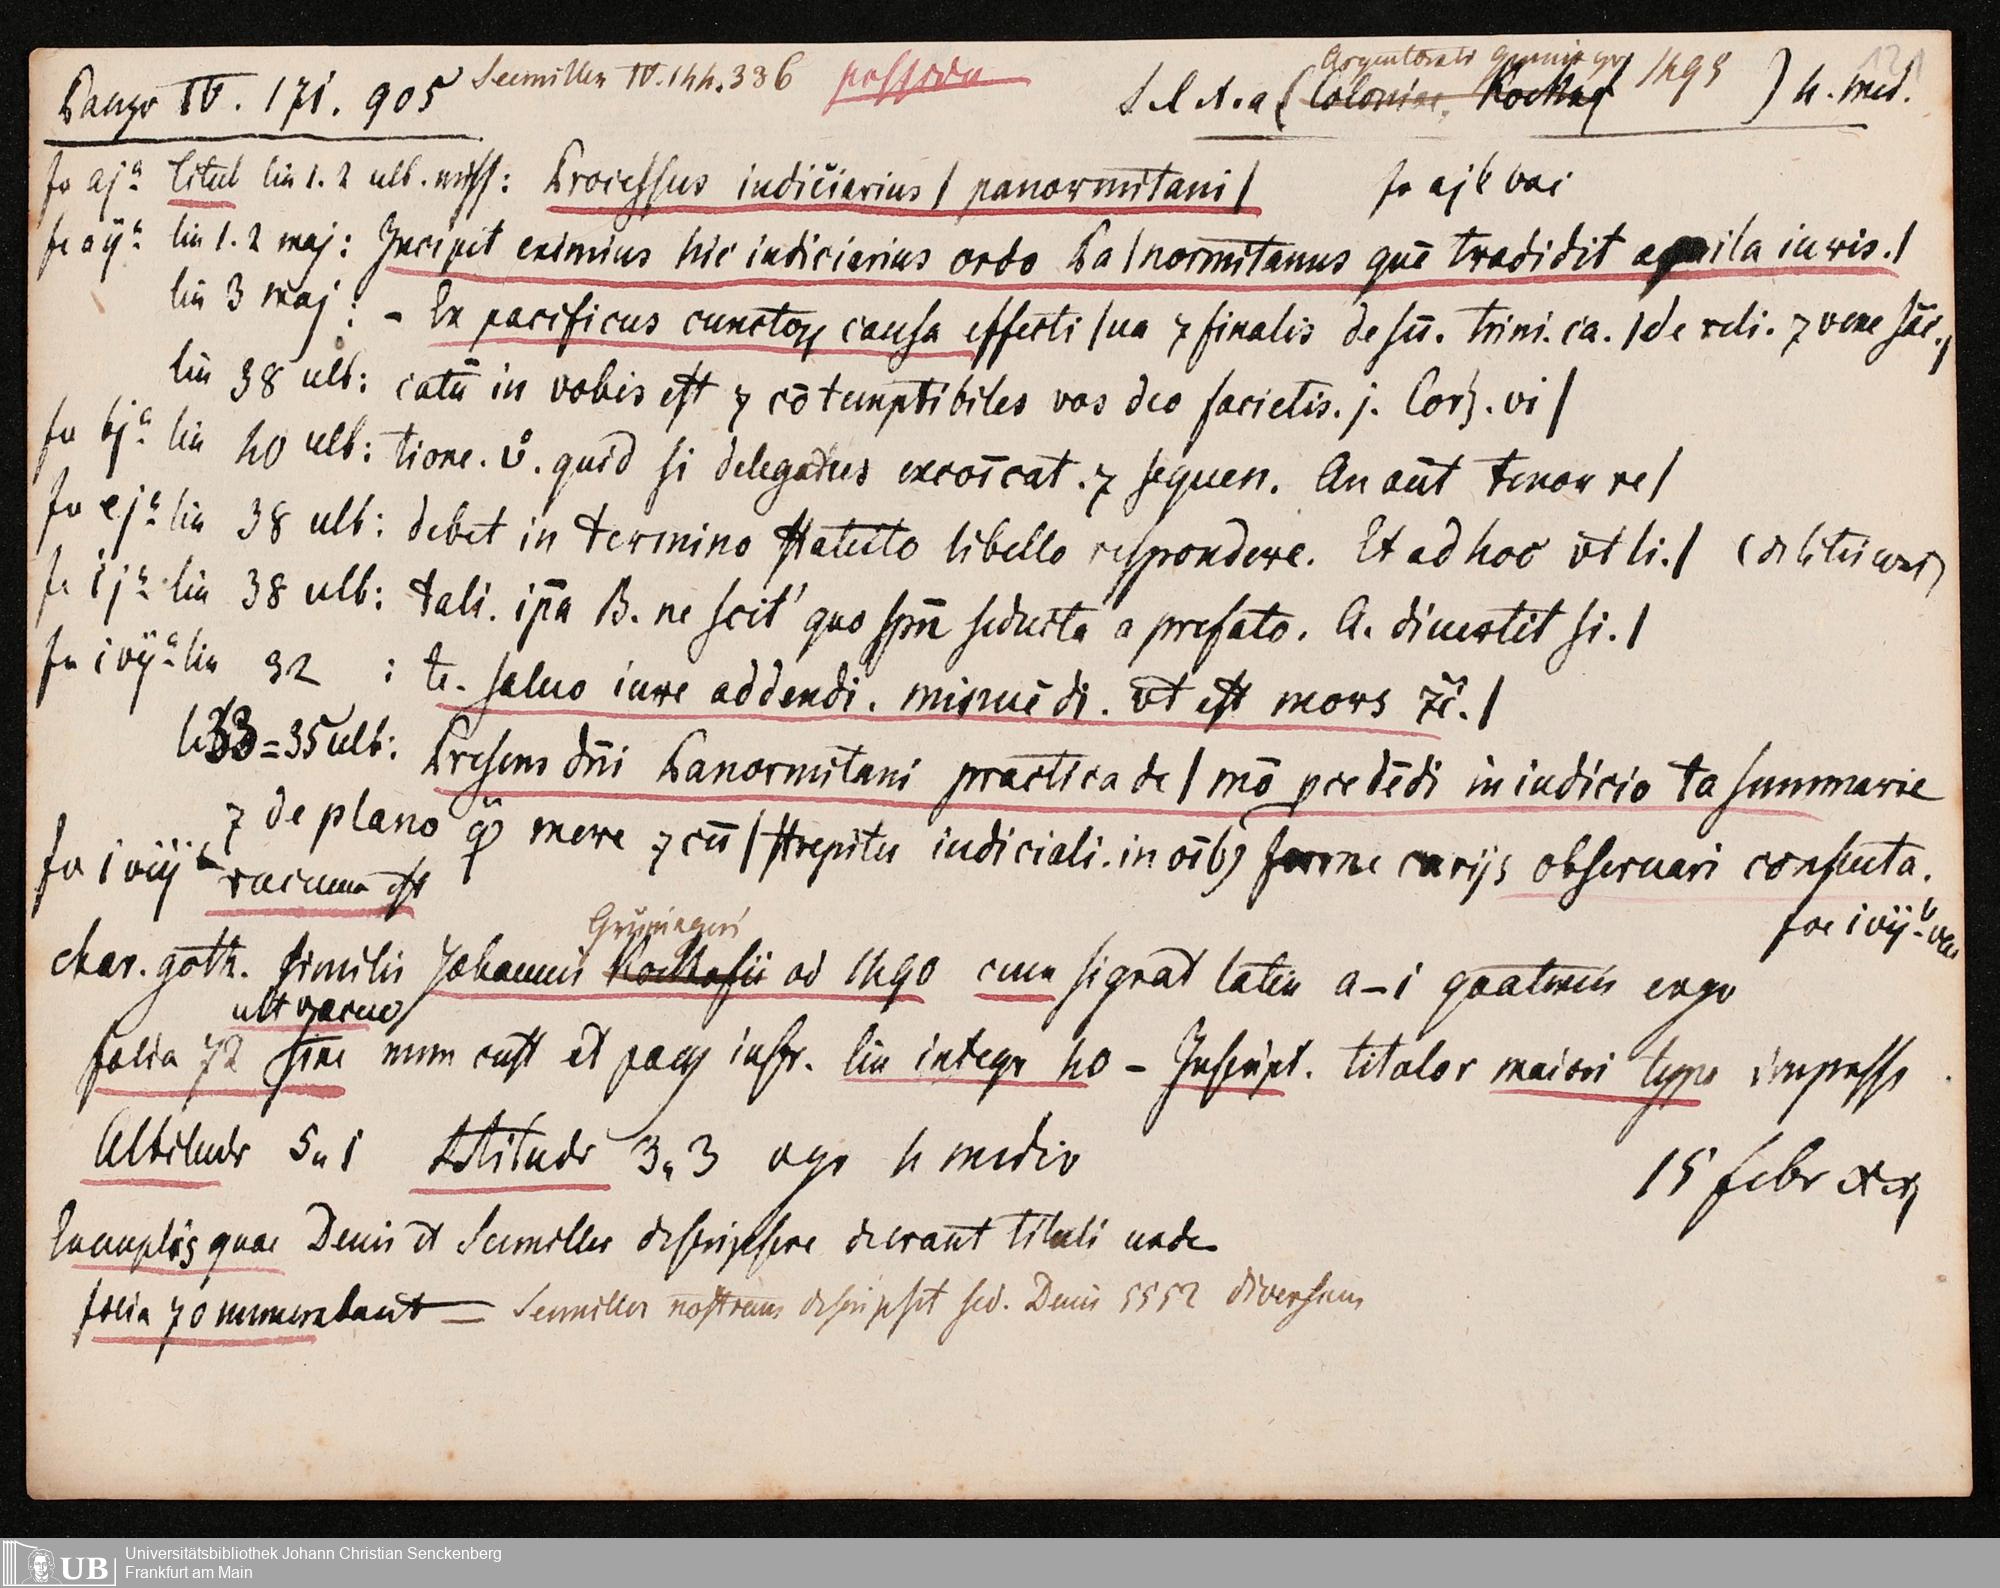 Panzr IV. 171. 905 Seemiller IV. 144. 336 possedu S. l. t. a (Argentorati Grüningr 1495 Coloniae, Koelhof) 4. med.
fo aj a titul lin 1. 2 ulb. miss: Processus iudiciarius / panormitani / fo aj b vac
fo aij a lin 1. 2 maj: Incipit eximius hic iudiciarius ordo Pa / normitanus quē tradidit aquila iuris. /
lin 3 maj: - Ex pacificus cunctoꝝ causa effecti / ua ⁊ finalis de sū. trini. ca. / de reli. ⁊ vene sāc. /
lin 38 ulb: catū in vobis est ⁊ cōtemptibiles vos deo facietis. j. Corꝝ. vi /
fo bj a lin 40 ulb: tione. v̊. quid si delegatus excoīcat. ⁊ sequen. An aūt tenor re /
fo ej a lin 38 ulb: debet in termino statuto libello respondere. Et ad hoc vt li. /
fo ij a lin 38 ulb: tali. ip̄a B. nescit quo sp̄ū seducta a prefato. A. diuertit si. /
fo i vij a lin 32 : te. saluo iure addendi. minuēdi. vt est mors ⁊c̄. /
li 33 = 35 ulb: Presens dn̄i Panormitani practica de / mō procedēdi in iudicio tā summarie
⁊ de plano mere ⁊ cū / strepitu iudiciali. in oībꝫ ferme curijs obseruari consueta.
fo i viij b vacuum est fo i vij b vac
char. goth. similis Johannis Grüningeri Koelhofii ad 1490 cum signat latin a – i quatern ergo
ult vacuo
folia 72 sine num cust et pag infr. lin integr 40 – Inscript. titulor maiori typo impresse
Altitudo 5„1 Latitudo 3„3 ergo 4 medio
15 febr
Exemplis quae Denis et Seemiller descripsere deerant tituli unde
folia 70 numerabant = Seemiller nostrum descripsit sed. Denis 5552 diversum
UB Universitätsbibliothek Johann Christian Senckenberg
Frankfurt am Main